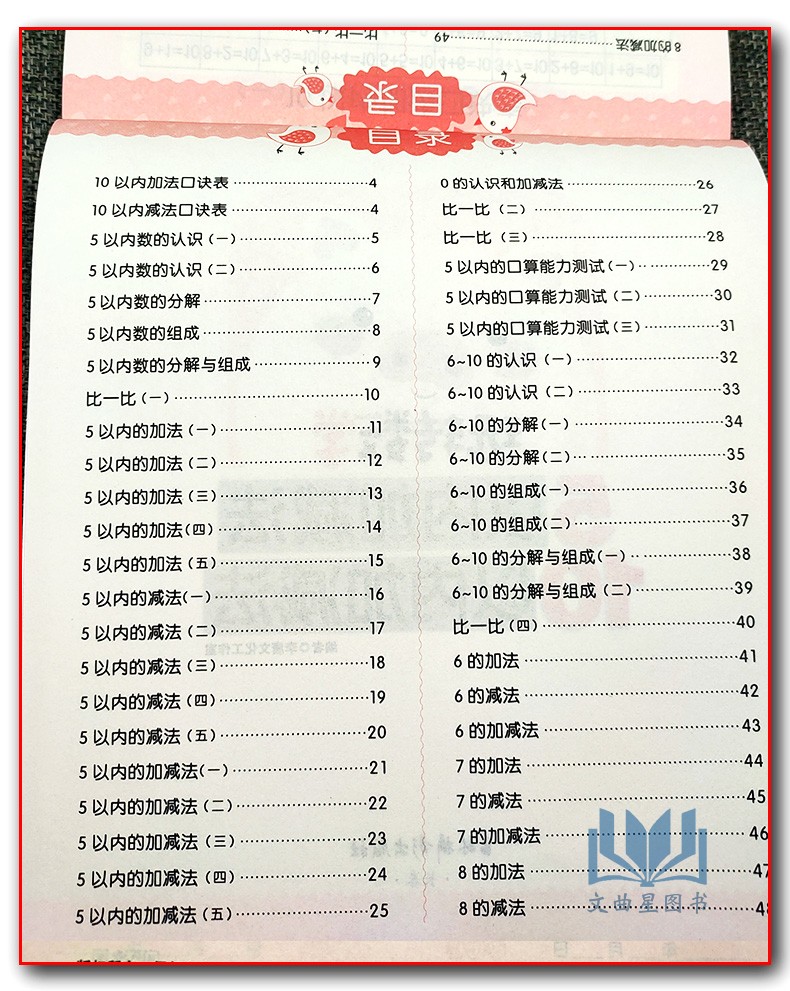 8 的加减法 49
目录
目录
10 以内加法口诀表 4
10 以内减法口诀表 4
5 以内数的认识（一） 5
5 以内数的认识（二） 6
5 以内数的分解 7
5 以内数的组成 8
5 以内数的分解与组成 9
比一比（一） 10
5 以内的加法（一） 11
5 以内的加法（二） 12
5 以内的加法（三） 13
5 以内的加法（四） 14
5 以内的加法（五） 15
5 以内的减法（一） 16
5 以内的减法（二） 17
5 以内的减法（三） 18
5 以内的减法（四） 19
5 以内的减法（五） 20
5 以内的加减法（一） 21
5 以内的加减法（二） 22
5 以内的加减法（三） 23
5 以内的加减法（四） 24
5 以内的加减法（五） 25
0 的认识和加减法 26
比一比（二） 27
比一比（三） 28
5 以内的口算能力测试（一） 29
5 以内的口算能力测试（二） 30
5 以内的口算能力测试（三） 31
6~10 的认识（一） 32
6~10 的认识（二） 33
6~10 的分解（一） 34
6~10 的分解（二） 35
6~10 的组成（一） 36
6~10 的组成（二） 37
6~10 的分解与组成（一） 38
6~10 的分解与组成（二） 39
比一比（四） 40
6 的加法 41
6 的减法 42
6 的加减法 43
7 的加法 44
7 的减法 45
7 的加减法 46
8 的加法 47
8 的减法 48
文曲星图书